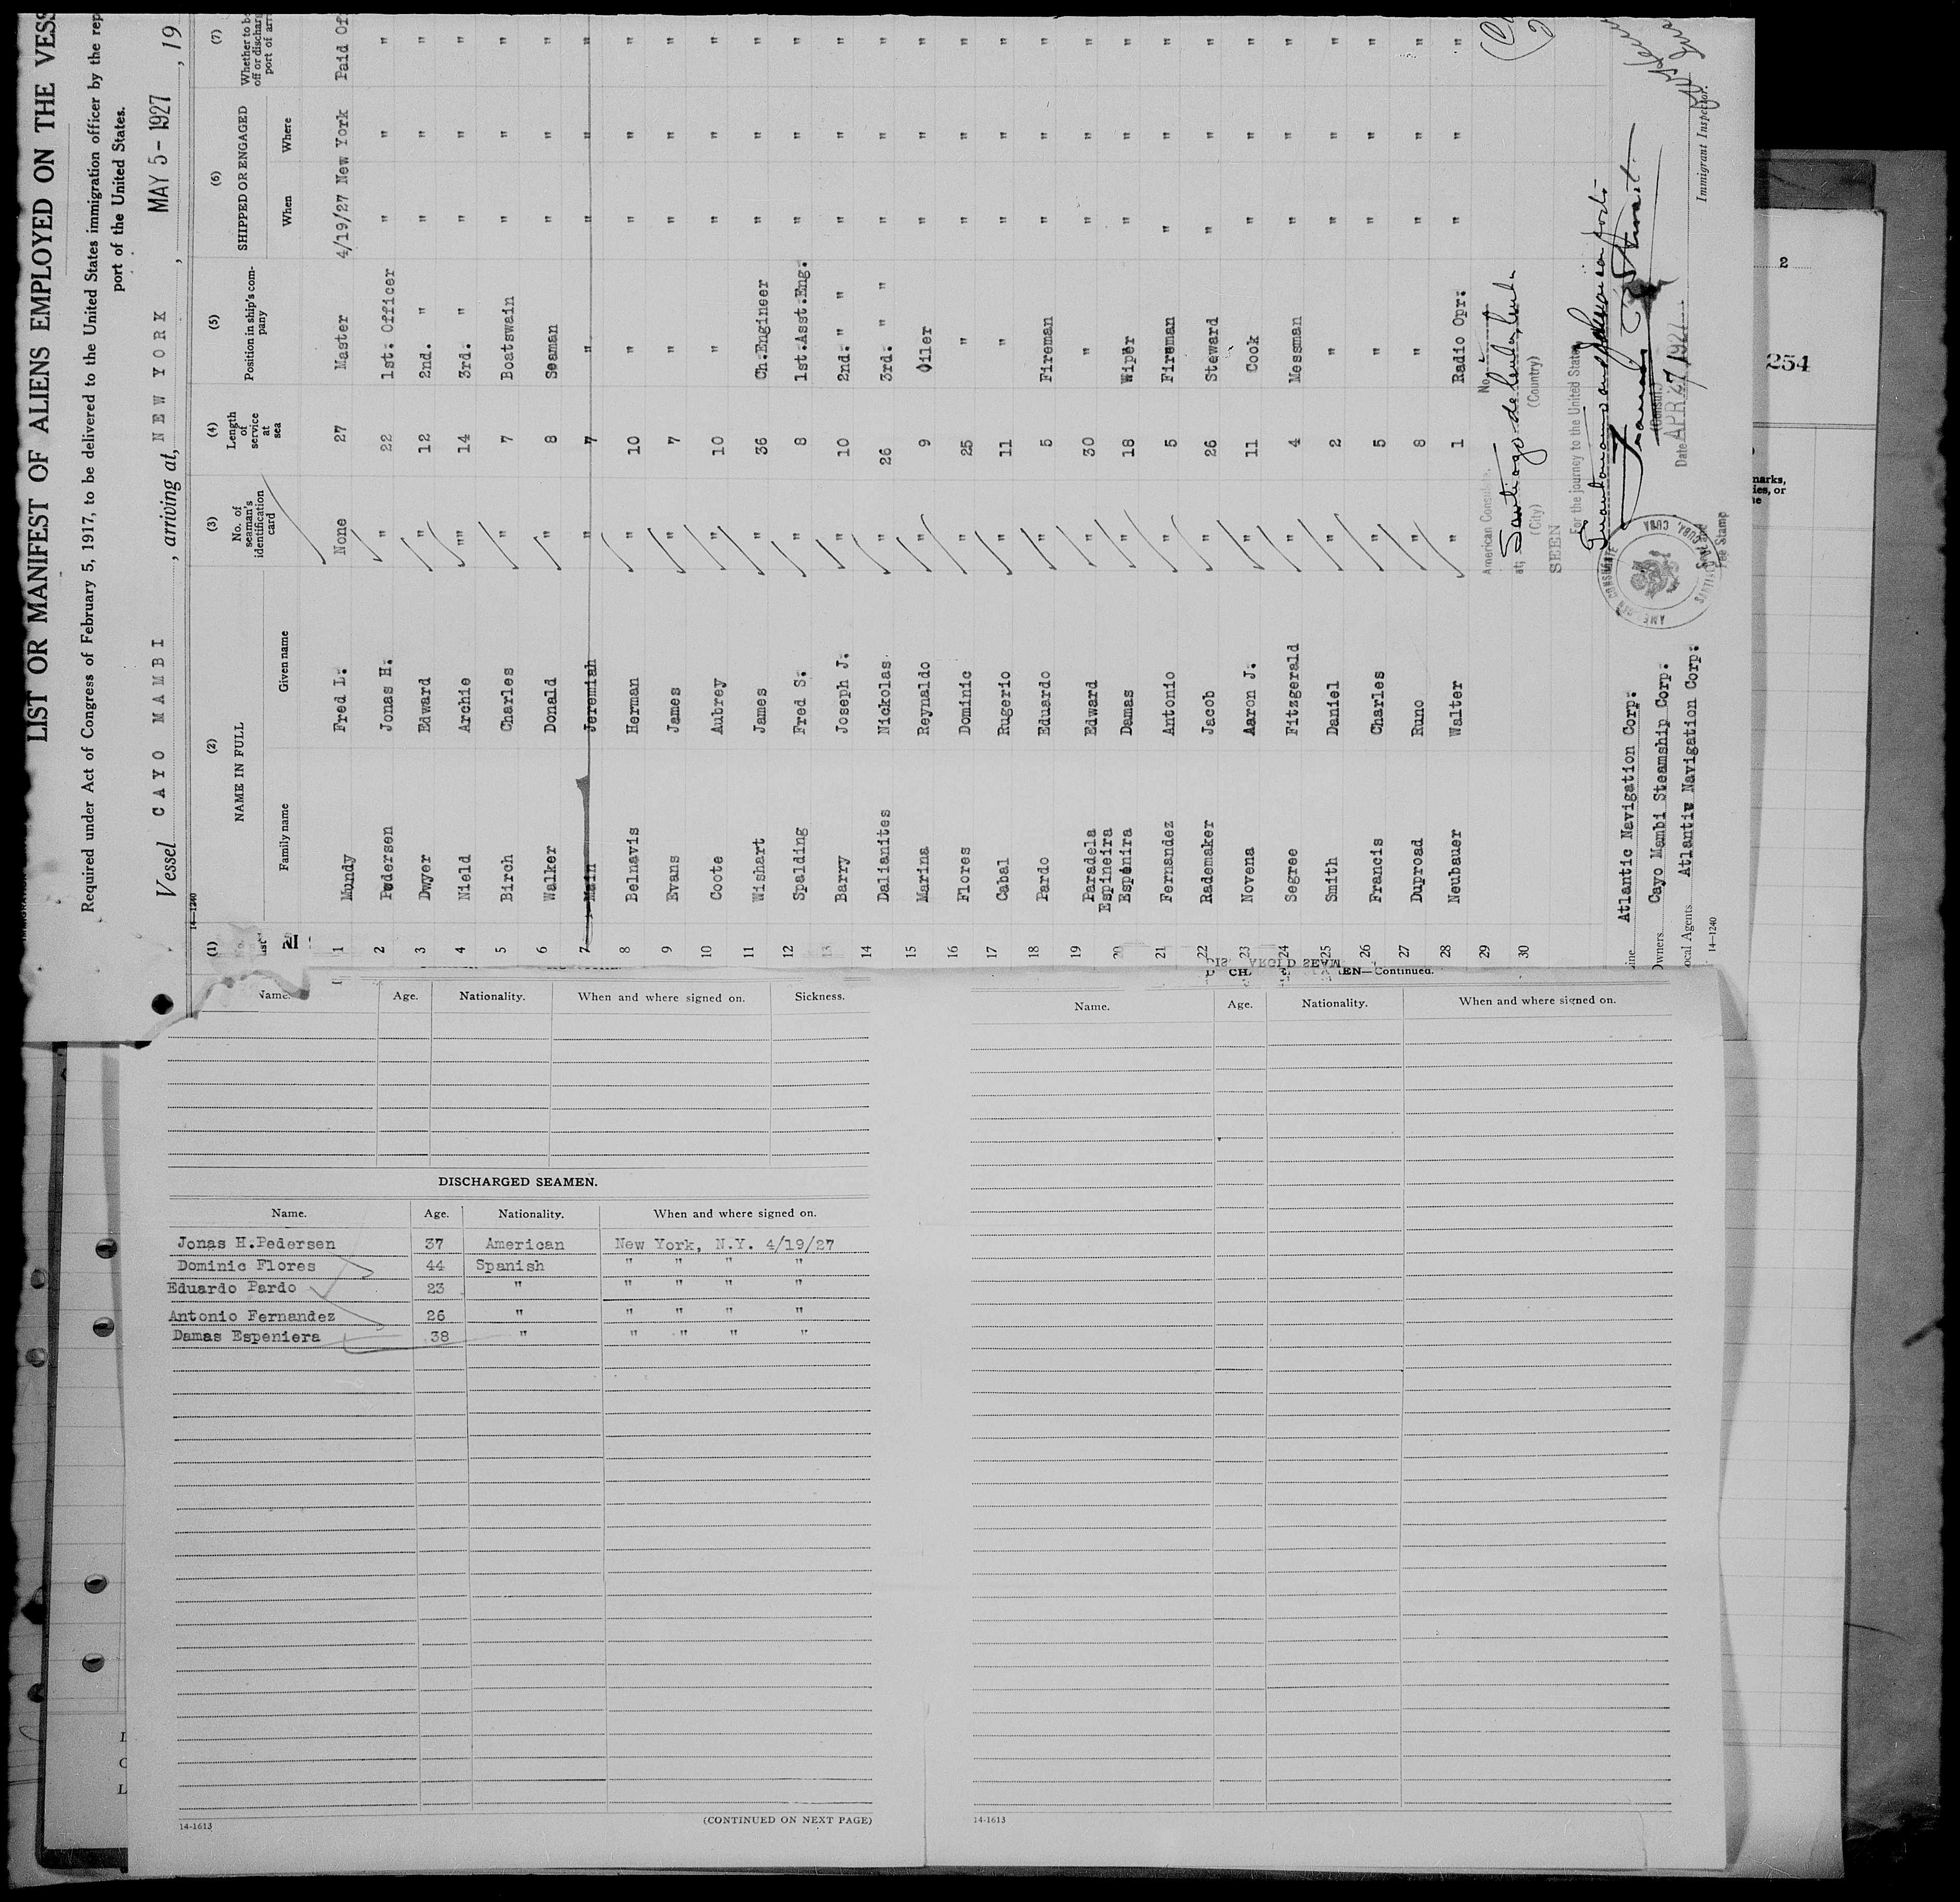 LIST OR MANIFEST OF ALIENS EMPLOYED ON THE VESS
Required under Act of Congress of February 5, 1917, to be delivered to the United States immigration officer by the rep
port of the United States.
Vessel CAYO MAMBI, arriving at, NEW YORK, MAY 5- 1927, 19
(1) (2) (3) (4) (5) (6) (7)
NAME IN FULL No. of seaman's identification card Length of service at sea Position in ship's company SHIPPED OR ENGAGED Whether to be off or discharg port of arri
Family name Given name When Where
1 Mundy Fred L. None 27 Master 4/19/27 New York Paid Of
2 Pedersen Jonas H. " 22 1st. Officer " " "
3 Dwyer Edward " 12 2nd. " " " "
4 Nield Archie "" 14 3rd. " " " "
5 Birch Charles " 7 Boatswain " " "
6 Walker Donald " 8 Seaman " " "
7 Main Jeremiah " 7 " " " "
8 Belnavis Herman " 10 " " " "
9 Evans James " 7 " " " "
10 Coote Aubrey " 10 " " " "
11 Wishart James " 36 Ch.Engineer " " "
12 Spalding Fred S. " 8 1st.Asst.Eng. " " "
13 Barry Joseph J. " 10 2nd. " " " " "
14 Dalianites Nickolas " 26 3rd. " " " " "
15 Marina Reynaldo " 9 Oiler " " "
16 Flores Dominic " 25 " " " "
17 Cabal Rugerio " 11 " " " "
18 Pardo Eduardo " 5 Fireman " " "
19 Paradela Edward " 30 " " " "
Espineira
20 Espenira Damas " 18 Wiper " " "
21 Fernandez Antonio " 5 Fireman " " "
22 Rademaker Jacob " 26 Steward " " "
23 Novena Aaron J. " 11 Cook " " "
24 Segree Fitzgerald " 4 Messman " " "
25 Smith Daniel " 2 " " " "
26 Francis Charles " 5 " " " "
27 Duproad Runo " 8 " " " "
28 Neubauer Walter " 1 Radio Opr. " " "
29
30
American Consulate, No.
at; Santiago de Cuba, Cuba
(City) (Country)
SEEN
For the journey to the United States
(Consul)
Date APR 27 1927
AMERICAN CONSULATE
SANTIAGO DE CUBA, CUBA
Fee Stamp
ine Atlantic Navigation Corp.
Owners Cayo Mambi Steamship Corp.
ocal Agents Atlantiv Navigation Corp.
Immigrant Inspector.
14-1240
14-1240
2
254
marks,
ies, or
EN—Continued.
Name. Age. Nationality. When and where signed on. Sickness.
DISCHARGED SEAMEN.
Name. Age. Nationality. When and where signed on.
Jonas H.Pedersen 37 American New York, N.Y. 4/19/27
Dominic Flores 44 Spanish " " " "
Eduardo Pardo 23 " " " " "
Antonio Fernandez 26 " " " " "
Damas Espeniera 38 " " " " "
14-1613
(CONTINUED ON NEXT PAGE)
Name. Age. Nationality. When and where signed on.
14-1613